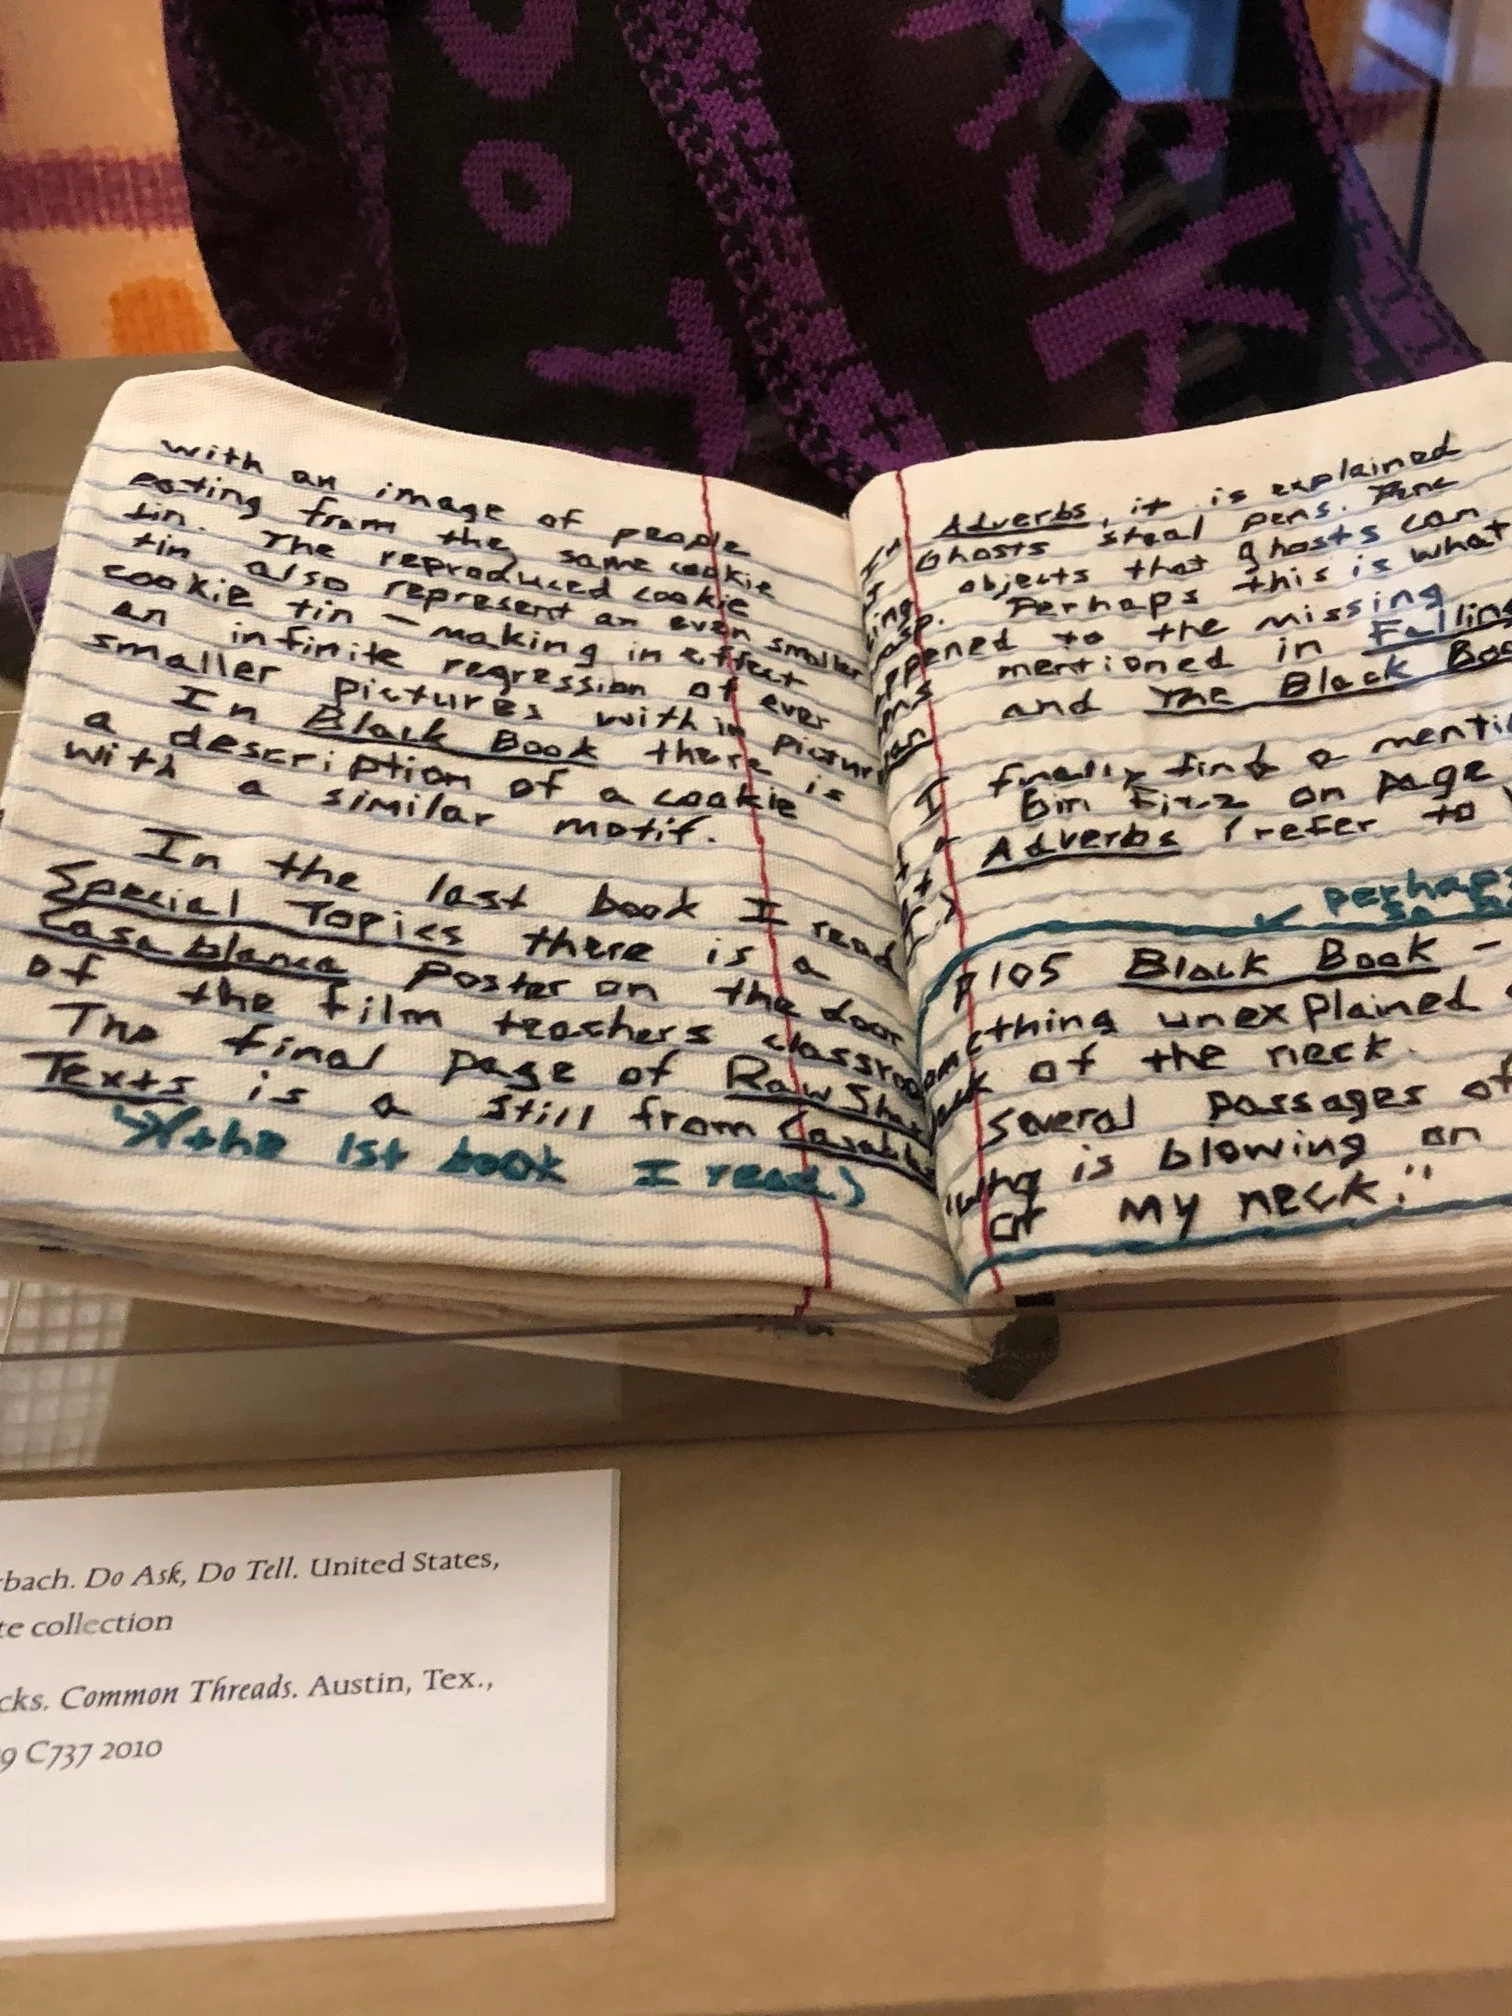 with an image of people
eating from the same cookie
tin. The reproduced cookie
tin also represent an even smaller
cookie tin – making in effect
an infinite regression of ever
smaller pictures within pictur
In Black Book there is
a description of a cookie
with a similar motif.
In the last book I read
Special Topics there is a
Casablanca poster on the door
of the film teachers classroo
The final page of Raw Sha
Texts is a still from Casabl
(the 1st book I read)
Adverbs, it is explained
Ghosts steal pens.
objects that ghosts can
Perhaps this is what
ppened to the missing
mentioned in Falling
and The Black Boo
I finally find a mentio
on page
Adverbs (refer to
perhaps
p105 Black Book –
omething unexplained
of the neck.
Several passages of
"Who is blowing on
or my neck."
rbach. Do Ask, Do Tell. United States,
te collection
cks. Common Threads. Austin, Tex.,
9 C737 2010
SK